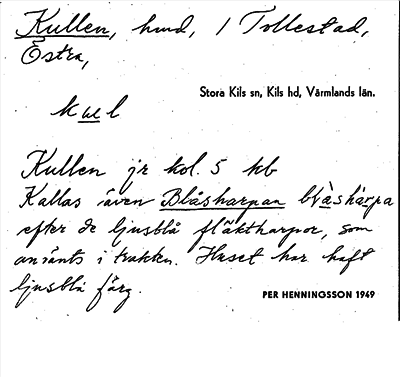 Kullen, hmd, i Tollestad,
Östra,
Stora Kils sn, Kils hd, Värmlands län.
kuel
Kullen jr kol. 5 kb
Kallas även Blåsharpan blåshárpa
efter de ljusblå fläktharpor, som
använts i trakten. Huset har haft
ljusblå färg.
PER HENNINGSSON 1949